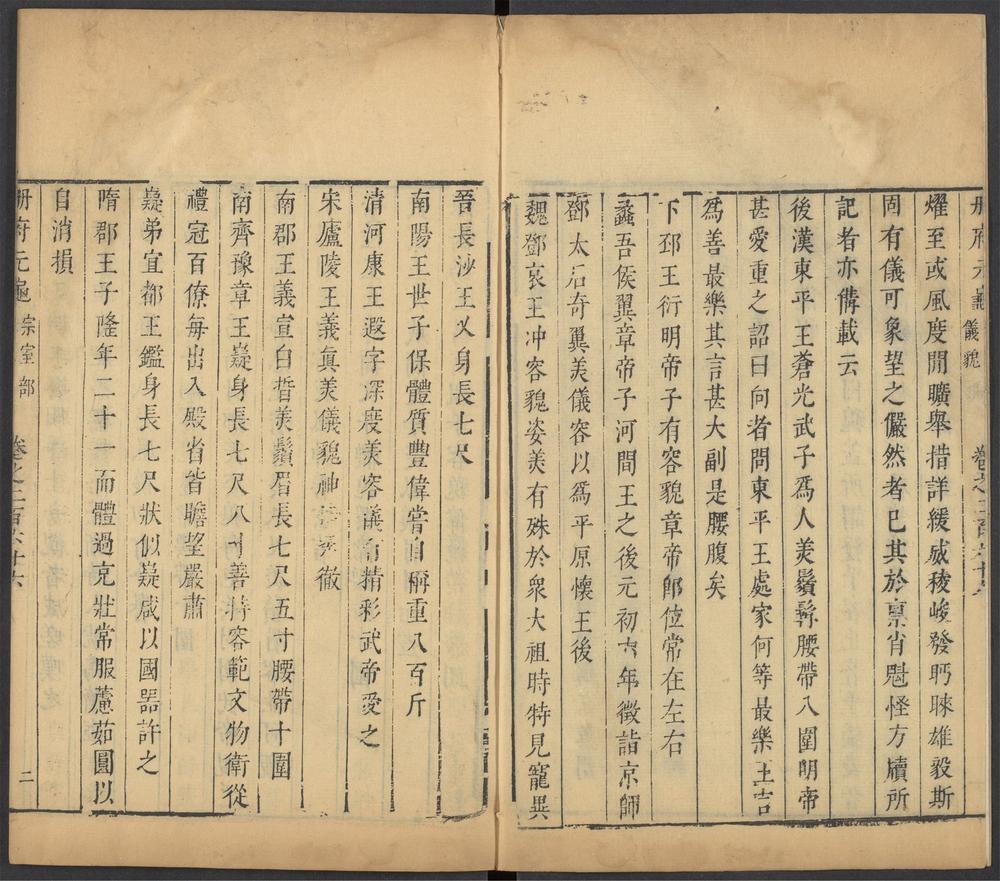 冊府元龜 儀貌 卷之二百六十六
燿至或風度閒曠舉措詳緩威稜峻發眄睞雄毅斯
固有儀可象望之儼然者已其於禀肖魁怪方牘所
記者亦備載云
後漢東平王蒼光武子爲人美鬚髯腰帶八圍明帝
甚愛重之詔曰向者問東平王處家何等最樂王言
爲善最樂其言甚大副是腰腹矣
下邳王衍明帝子有容貌章帝郎位常在左右
蠡吾侯翼章帝子河間王之後元初六年徵詣京師
鄧太后奇翼美儀容以爲平原懷王後
魏鄧哀王冲容貌姿美有殊於衆太祖時特見寵異
晉長沙王乂身長七尺
南陽王世子保體質豐偉嘗自稱重八百斤
清河康王遐字深度美容儀有精彩武帝愛之
宋廬陵王義真美儀貌神秀徹
南郡王義宣白晳美鬚眉長七尺五寸腰帶十圍
南齊豫章王嶷身長七尺八寸善持容範文物衛從
禮冠百僚每出入殿省皆瞻望嚴肅
嶷弟宜都王鑑身長七尺狀似嶷咸以國器許之
隋郡王子隆年二十一而體過充壯常服蘆茹圓以
自消損
冊府元龜 宗室部 卷之二百六十六 二